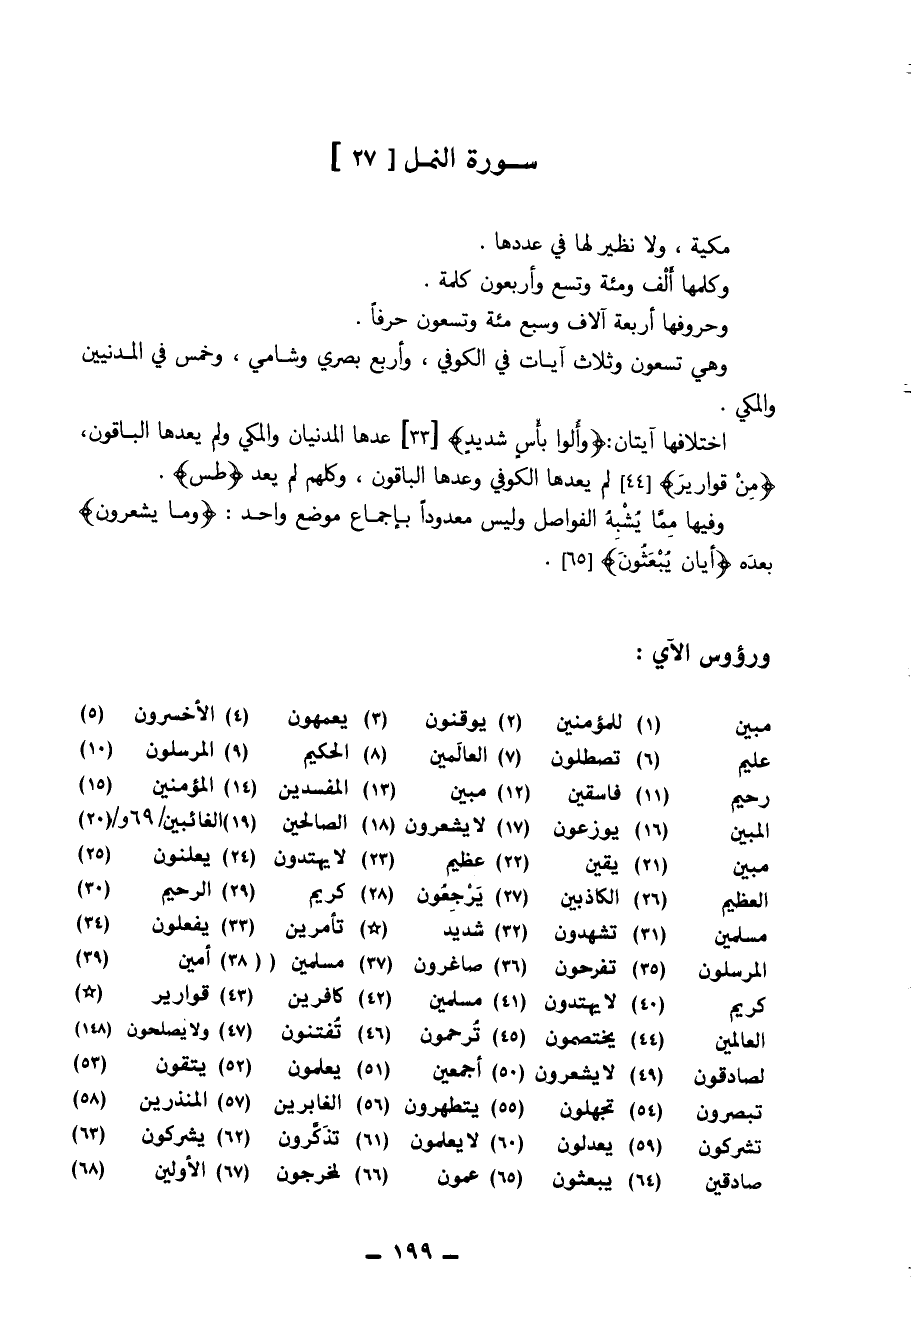 سـورة النمـل [ ٢٧ ]
مكية ، ولا نظير لها في عددها .
وكلمها أَلْف ومئة وتسع وأربعون كلمة .
وحروفها أربعة آلاف وسبع مئة وتسعون حرفاً .
وهي تسعون وثلاث آيـات في الكوفي ، وأربع بصري وشـامي ، وخمس في المـدنيين
والمكي .
اختلافها آيتان:﴿وأُلوا بأْسٍ شديدٍ﴾ [٣٣] عدها المدنيان والمكي ولم يعدها البـاقون،
﴿مِنْ قواريرَ﴾ [٤٤] لم يعدها الكوفي وعدها الباقون ، وكلهم لم يعد ﴿طس﴾ .
وفيها مِمَّا يُشْبِهُ الفواصل وليس معدوداً بـإجماع موضع واحـد : ﴿ومـا يشعرون﴾
بعدَه ﴿أيان يُبْعَثُونَ﴾ [٦٥] .
ورؤوس الآي :
مبين (١) للمؤمنين (٢) يوقنون (٣) يعمهون (٤) الأخسرون (٥)
عليم (٦) تصطلون (٧) العالَمين (٨) الحكيم (٩) المرسلون (١٠)
رحيم (١١) فاسقين (١٢) مبين (١٣) المفسدين (١٤) المؤمنين (١٥)
المبين (١٦) يوزعون (١٧) لايشعرون (١٨) الصالحين (١٩)الغائبين/٦٩و/(٢٠)
مبين (٢١) يقين (٢٢) عظيم (٢٣) لايهتدون (٢٤) يعلنون (٢٥)
العظيم (٢٦) الكاذبين (٢٧) يَرْجِعُون (٢٨) كريم (٢٩) الرحيم (٣٠)
مسلمين (٣١) تشهدون (٣٢) شديد (☆) تأمرين (٣٣) يفعلون (٣٤)
المرسلون (٣٥) تفرحون (٣٦) صاغرون (٣٧) مسلمين ( ( ٣٨) أمين (٣٩)
كريم (٤٠) لايهتدون (٤١) مسلمين (٤٢) كافرين (٤٣) قوارير (☆)
العالمين (٤٤) يختصمون (٤٥) تُرحمون (٤٦) تُفتنون (٤٧) ولايصلحون (١٤٨)
لصادقون (٤٩) لايشعرون (٥٠) أجمعين (٥١) يعلمون (٥٢) يتقون (٥٣)
تبصرون (٥٤) تجهلون (٥٥) يتطهرون (٥٦) الغابرين (٥٧) المنذرين (٥٨)
تشركون (٥٩) يعدلون (٦٠) لايعلمون (٦١) تذكَّرون (٦٢) يشركون (٦٣)
صادقين (٦٤) يبعثون (٦٥) عمون (٦٦) لمخرجون (٦٧) الأولين (٦٨)
ـ ١٩٩ ـ